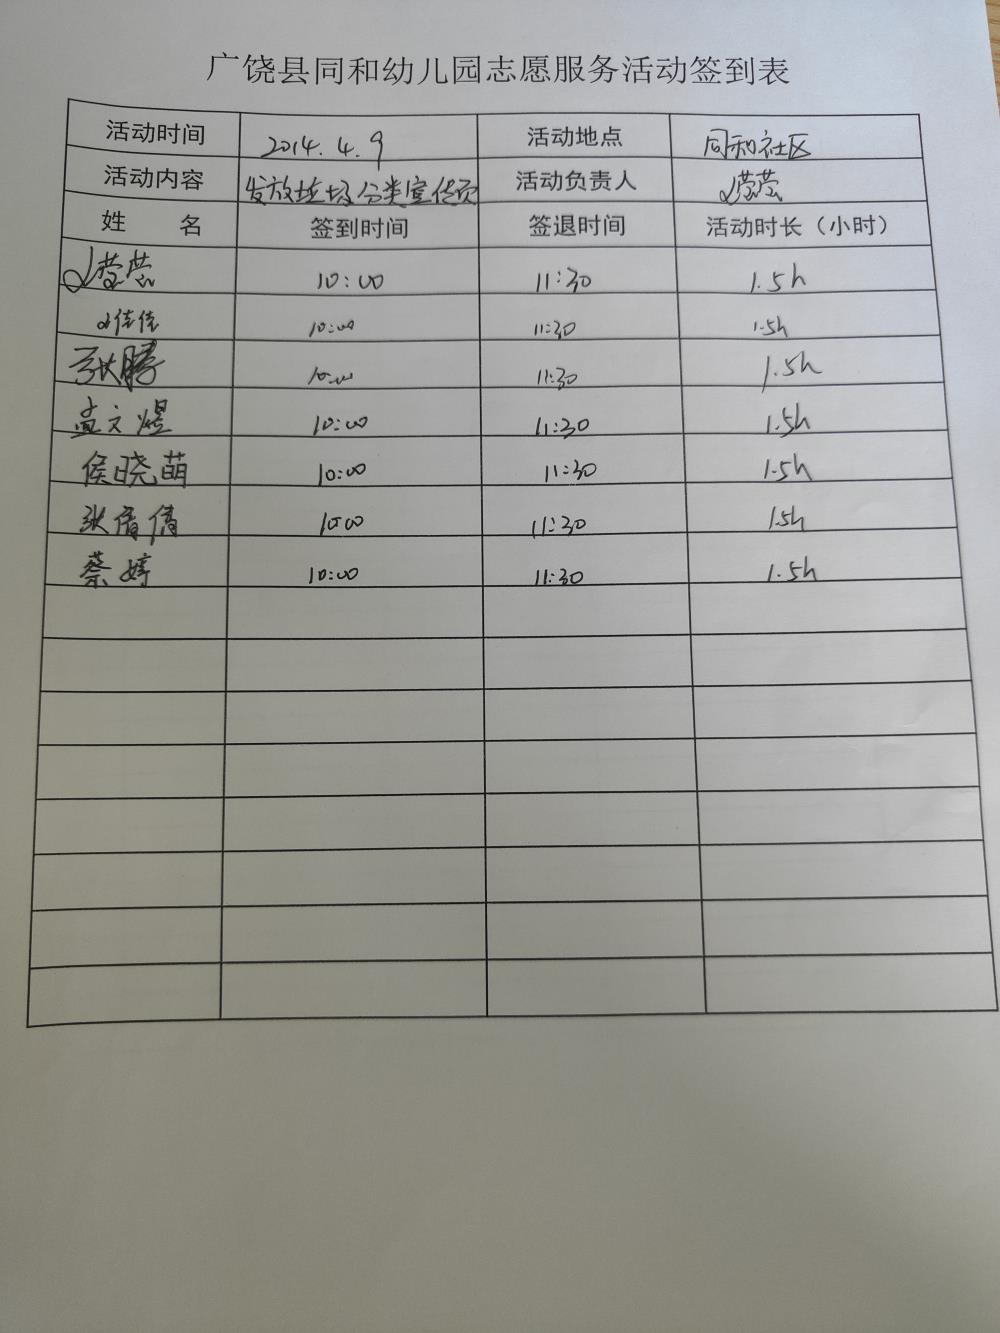 广饶县同和幼儿园志愿服务活动签到表
活动时间 2014.4.9 活动地点 同和社区
活动内容 发放垃圾分类宣传页 活动负责人 莹莹
姓 名 签到时间 签退时间 活动时长（小时）
莹莹 10:00 11:30 1.5h
佳佳 10:00 11:30 1.5h
张腾 10:00 11:30 1.5h
孟文煜 10:00 11:30 1.5h
侯晓萌 10:00 11:30 1.5h
张倩倩 10:00 11:30 1.5h
蔡婷 10:00 11:30 1.5h